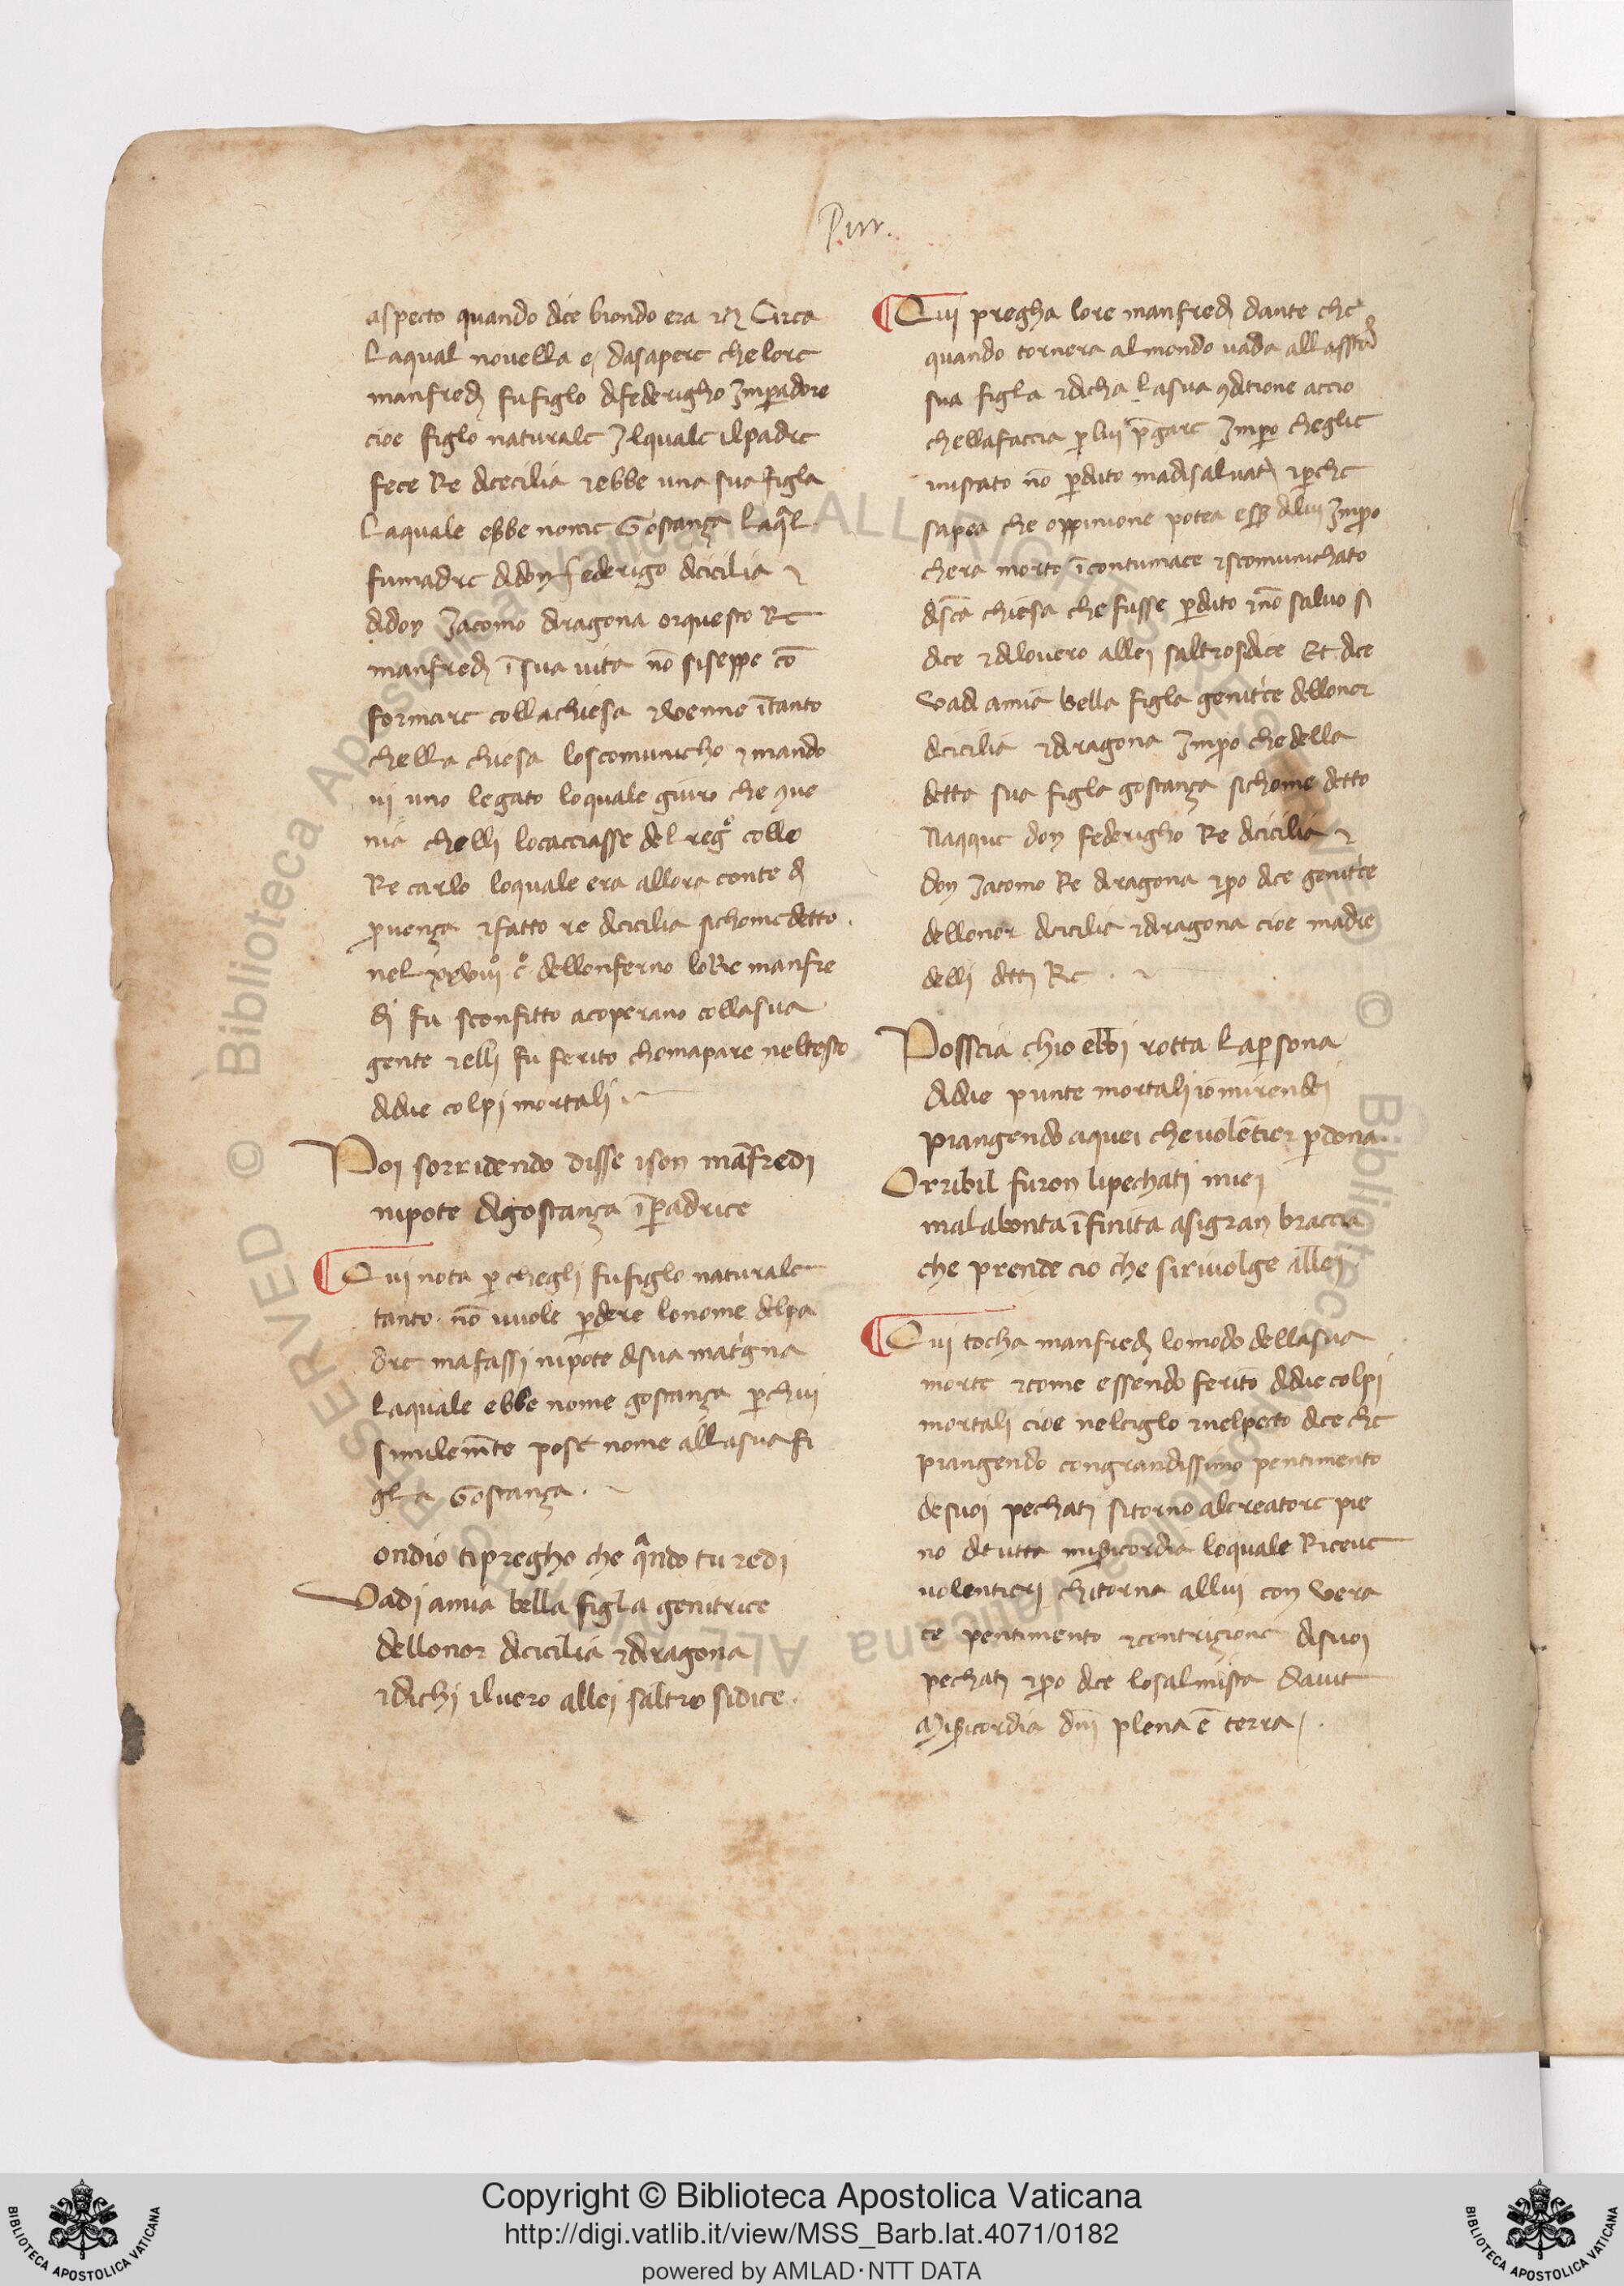 Pur.
aspecto quando dice biondo era ⁊c̃ Circa
Laqual nouella e, dasapere che lore
manfredi fufiglo difederigho Imꝑadore
cioe figlo naturale Ilquale ilpadre
fece Re dicecilia ⁊ebbe una sua figla
Laquale ebbe nome Gostança laq̃l
fumadre didon federigo dicicilia ⁊
didon Iacomo dragona orquesto Re
manfredi ĩ sua uita nõ siseppe cõ
formare collachiesa ⁊venne ĩtanto
chella chiesa loscomunicho ⁊mando
ui uno legato loquale giuro che ꝯue
nia chelli locacciasse del regº collo
Re carlo loquale era allora conte di
ꝓuença ⁊fatto re dicicilia sichome detto
nel xxviiiº cº dellonferno loRe manfre
di fu sconfitto acoperano collasua
gente ⁊elli fu ferito chomapare neltesto
didue colpi mortali
Poi sorridendo disse ison mãfredi
nipote digostança ĩꝑadrice
Qui nota ꝑ chegli fufiglo naturale
tanto nõ uuole ꝑdere lonome delpa
dre mafassi nipote disua mat'gna
Laquale ebbe nome gostança ꝑchui
similem̃te pose nome allasuafi
gla Gostança.
ondio tipregho che q̃ndo tu redi
Vadi amia bella figla genitrice
dellonor dicicilia ⁊dragona
⁊dichi iluero allei saltro sidice.
Qui pregha lore manfredi dante che
quando tornera al mondo uada alla
sua figla ⁊dicha Lasua ꝯditione accio
chellafaccia ꝑ lui p̃gare Imꝑo cheglie
inistato nõ ꝑduto madisaluat ⁊ꝑche
sapea che oppinione potea ess̃ dilui Imꝑo
chera morto ĩcontumace ⁊scomunichato
disc̃a chiesa che fusse ꝑduto ⁊nõ saluo si
dice ⁊dilouero allei saltrosidice Et dice
Vadi amia bella figla genit'ce dellonor
dicicilia ⁊dragona Imꝑo chedella
detta sua figla gostança sichome detto
Nacque don federigho Re dicicilia ⁊
don Iacomo Re dragona ⁊ꝑo dice genit'ce
dellonor dicicilia ⁊dragona cioe madre
delli detti Re.
Posscia chio ebbi rotta Laꝑsona
didue punte mortali iomirendei
piangendo aquei cheuolẽtier ꝑdona.
Orribil furon lipechati miei
malabonta ĩfinita asigran braccia
che prende cio che siriuolge allei
Qui tocha manfredi lomodo dellasua
morte ⁊come essendo ferito didue colpi
mortali cioe nelciglo ⁊nelpecto dice che
piangendo congrandissimo pentimento
desuoi pechati sitorno alcreatore pie
no ditutta mis̃icordia loquale Riceue
uolentieri chitorna allui con vera
ce pentimento ⁊contrizione disuoi
pechati ⁊ꝑo dice losalmista dauit
Mis̃icordia dñi plena ẽ terra.
Copyright © Biblioteca Apostolica Vaticana
http://digi.vatlib.it/view/MSS_Barb.lat.4071/0182
powered by AMLAD·NTT DATA
BIBLIOTECA APOSTOLICA VATICANA
BIBLIOTECA APOSTOLICA VATICANA